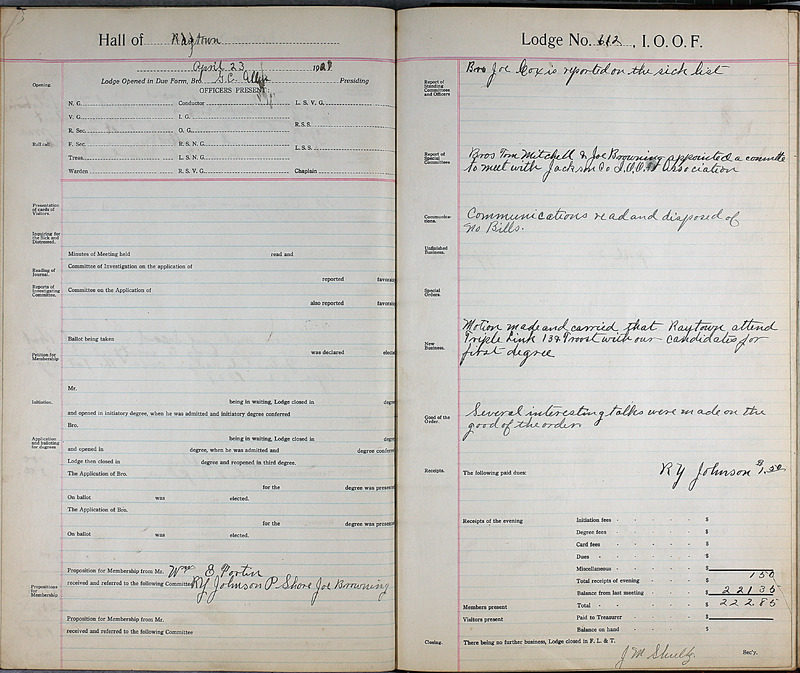 Hall of Raytown
April 23 1928
Lodge Opened in Due Form, Bro. G.C. Presiding
OFFICERS PRESENT:
Opening.
N. G. Conductor L. S. V. G.
V. G. I. G.
R.S.S.
R. Sec. O. G.
Roll call.
F. Sec. R. S. N. G.
L.S.S.
Treas. L. S. N. G.
Warden R. S. V. G. Chaplain
Presentation of cards of Visitors.
Inquiring for the Sick and Distressed.
Minutes of Meeting held read and
Reading of Journal.
Committee of Investigation on the application of
reported favora
Reports of Investigating Committee.
Committee on the Application of
also reported favora
Ballot being taken
was declared elec
Petition for Membership
Mr.
Initiation.
being in waiting, Lodge closed in degr
and opened in initiatory degree, when he was admitted and initiatory degree conferred
Bro.
Application and balloting for degrees
being in waiting, Lodge closed in degr
and opened in degree, when he was admitted and degree confer
Lodge then closed in degree and reopened in third degree.
The Application of Bro.
for the degree was presen
On ballot was elected.
The Application of Bro.
for the degree was presen
On ballot was elected.
Propositions for Membership
Proposition for Membership from Mr. Wm E Portin
received and referred to the following Committee RY Johnson P Shore Joe Browning
Proposition for Membership from Mr.
received and referred to the following Committee
Lodge No. 612, I. O. O. F.
Report of Standing Committees and Officers
Bro Joe Cox is reported on the sick list
Report of Special Committees
Bros Tom Mitchell & Joe Browning appointed a committe
to meet with Jackson Co I.O.O.F Association
Communications.
Communications read and disposed of
No Bills.
Unfinished Business.
Special Orders.
New Business.
Motion made and carried that Raytown attend
Triple Link 13 & Troost with our candidates for
first degree
Good of the Order.
Several interesting talks were made on the
good of the order
Receipts.
The following paid dues: RY Johnson $1.50
Receipts of the evening Initiation fees $
Degree fees $
Card fees $
Dues $
Miscellaneous $
Total receipts of evening $ 1 50
Balance from last meeting $ 221 35
Members present Total $ 222.85
Visitors present Paid to Treasurer $
Balance on hand $
Closing.
There being no further business, Lodge closed in F. L. & T.
J M Shultz Sec'y.